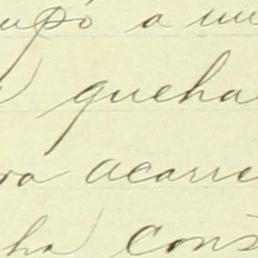 upó a un
queha
ra acarre
ha cons